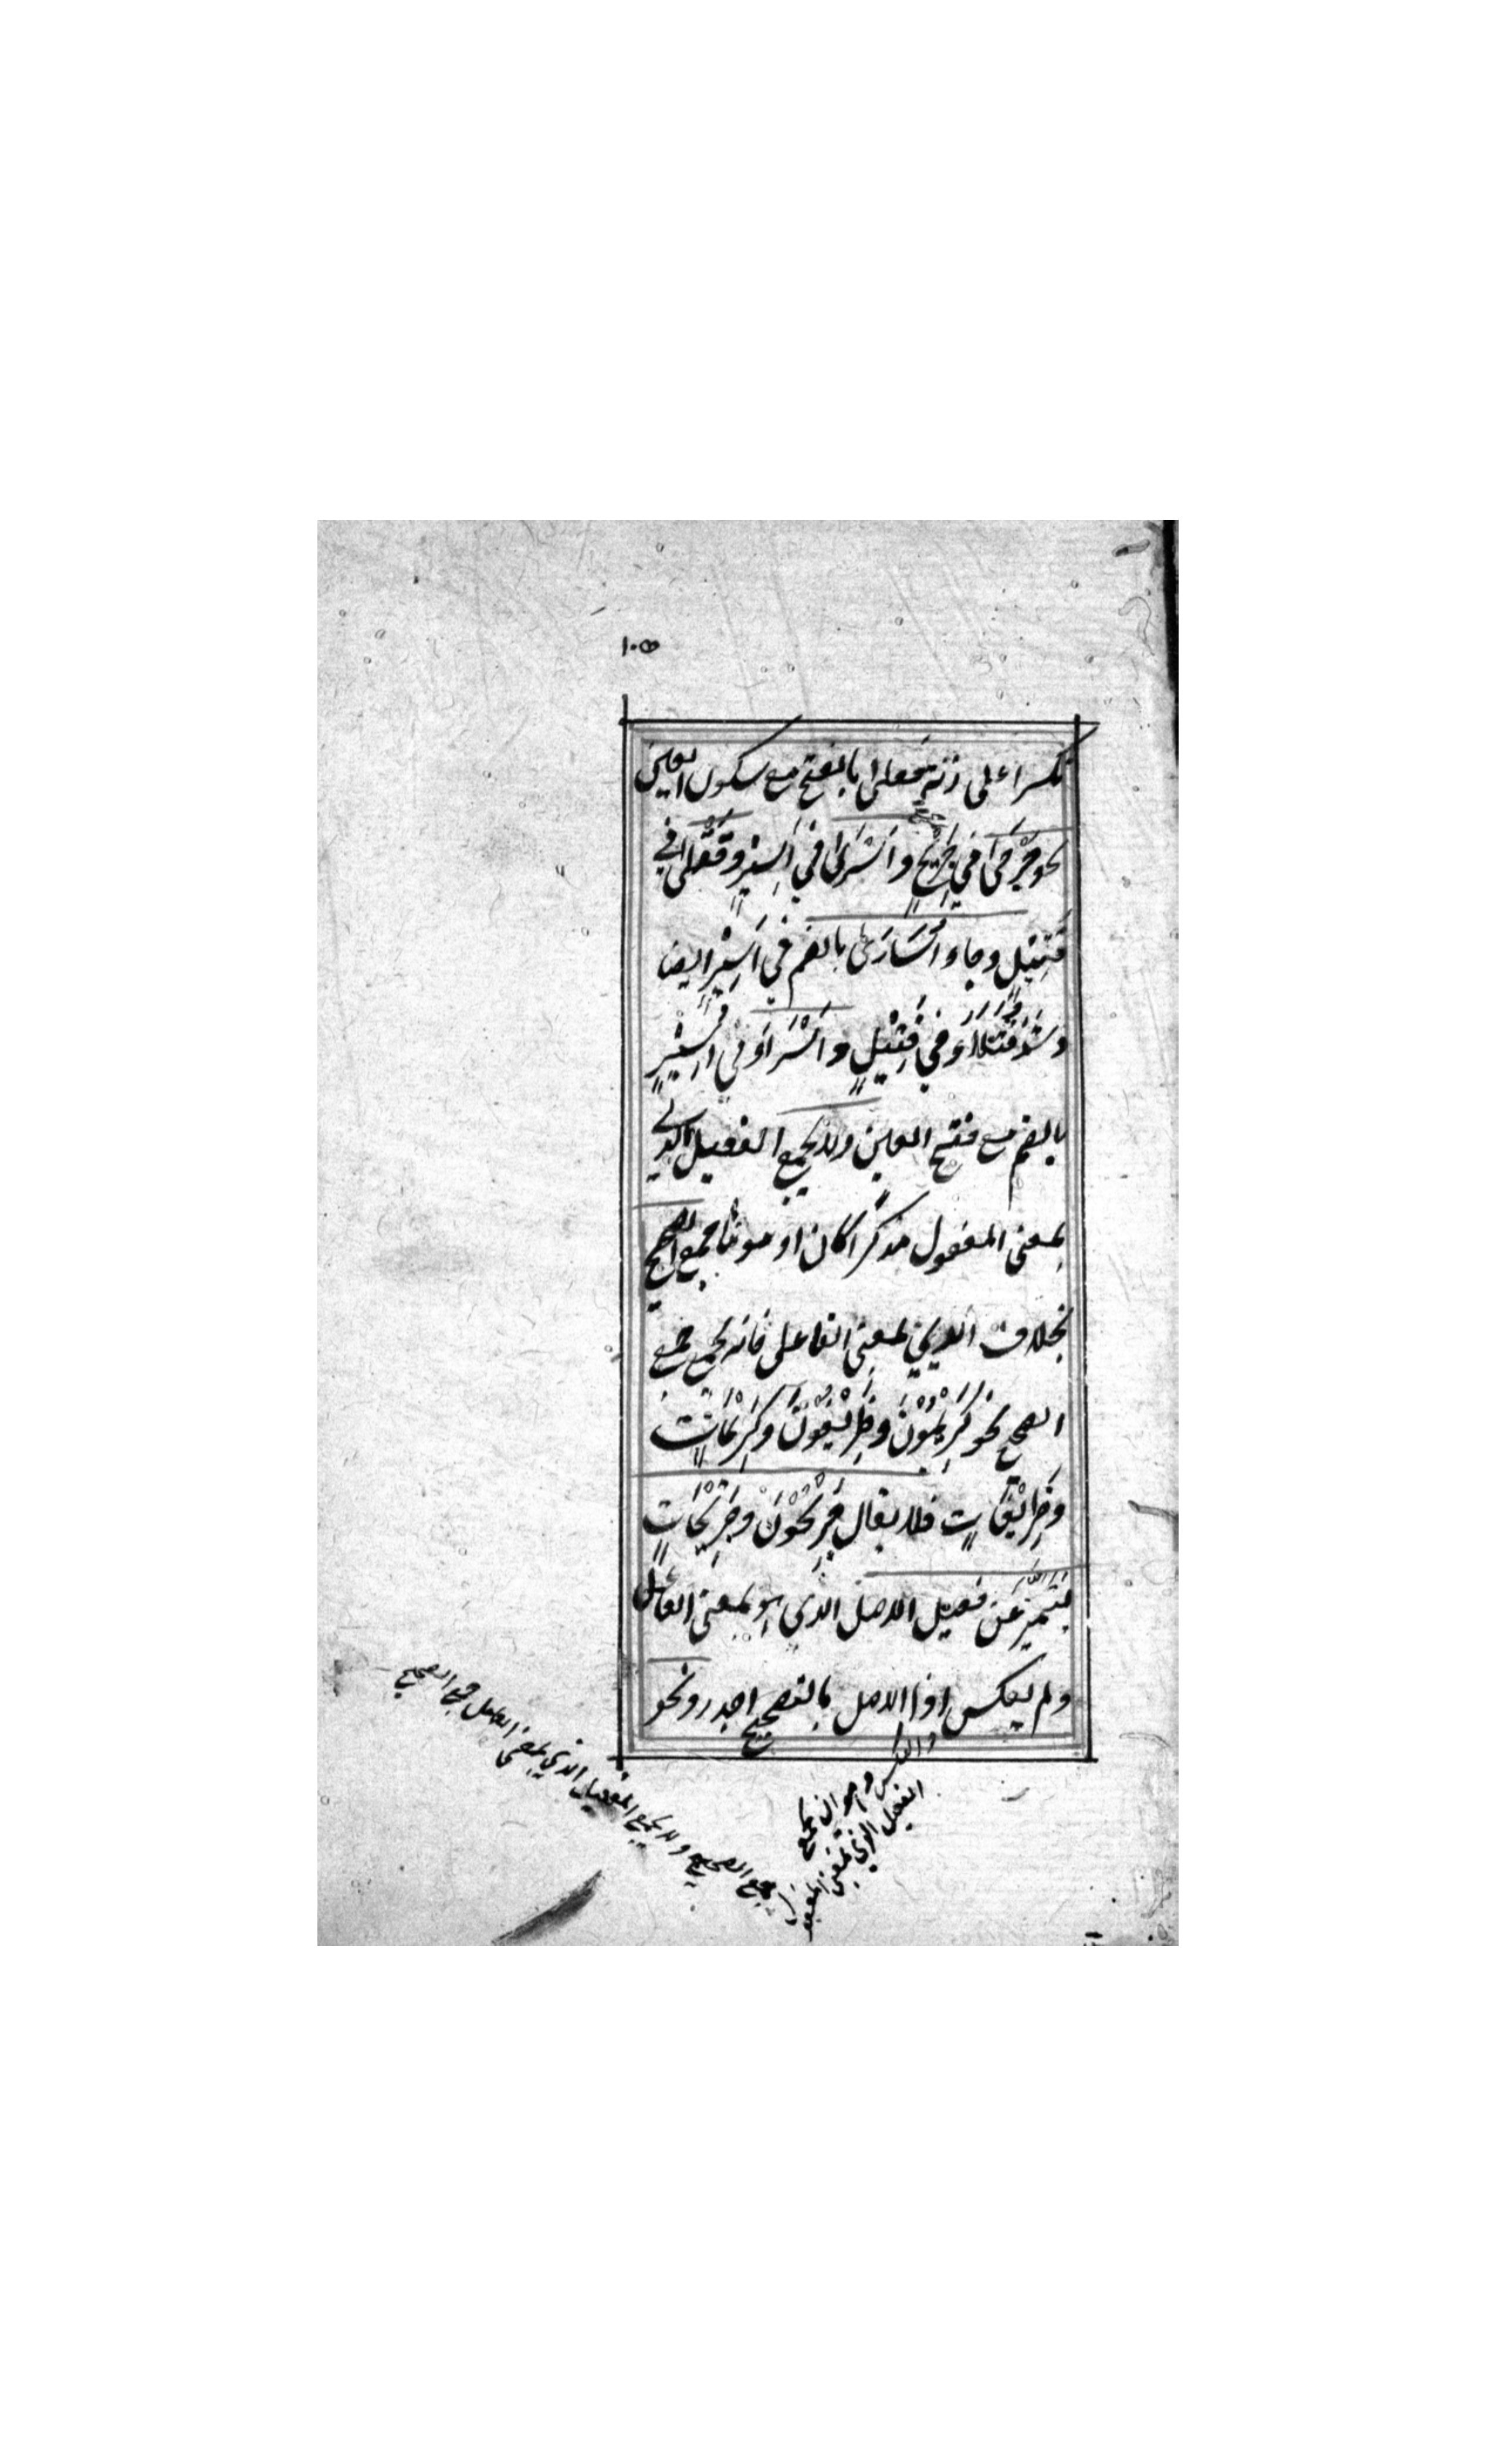 ١٠٥
مكسرا على زنة فعلى بالفتح مع سكون العين
نحو جَرْحَى في جَرِيْحٍ و اَسْرَى في اَسِيْرٍ و قَتْلَى في
قَتِيْلٍ وجاء اُسَارَى بالضم في اَسِيْرٍ ايضا
وشذ قُتَلَاءُ في قَتِيْلٍ و اُسَرَاءُ في اَسِيْرٍ
بالضم مع فتح العين ولا يجمع الفعيل الذي
بمعنى المفعول مذكرا كان او مونثا جمع الصحيح
بخلاف الذي بمعنى الفاعل فانه يجمع جمع
الصحيح نحو كَرِيْمُوْنَ وظَرِيْفُوْنَ وكَرِيْمَاتٌ
وظَرِيْفَاتٌ فلا يقال جَرِيْحُوْنَ وجَرِيْحَاتٍ
ليتميز عن فعيل الاصل الذي هو بمعنى الفاعل
ولم يعكس اذ الاصل بالتصحيح اجدر ونحو
والعكس وهو ان يجمع
الفعيل الذي بمعنى المفعول
جمع الصحيح ولا يجمع الفعيل الذي بمعنى الفاعل جمع الصحيح